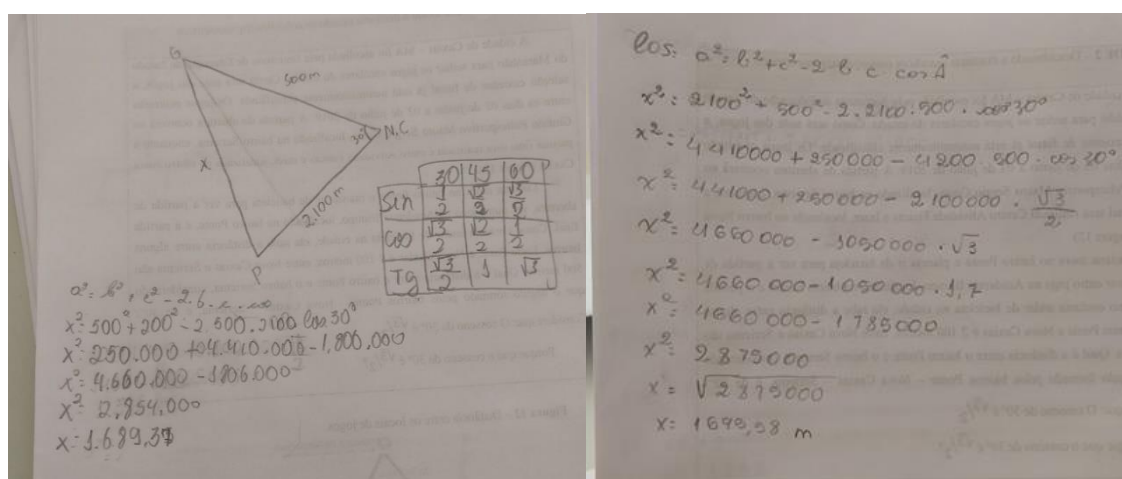 G
500m
30°
N,C
x
2100m
P
30 45 60
Sen 1/2 √2/2 √3/2
cos √3/2 √2/2 1/2
Tg √3/2 1 √3
x²= 500²+200²-2.500.2100 cos 30°
x²= 250.000 + 4.410.000 - 1,800.000
x²= 4.660.000 - 1806.000
x²= 2.854.000
x= 1.689,37
cos: a²= b²+c²-2.b c cos Â
x²= 2100²+ 500²- 2.2100.500. cos 30°
x²= 4410000 + 250000 - 4200.500. cos 30°
x²= 441000 + 250000 - 2100000. √3/2
x²= 4660000 - 1050000.√3
x²= 4660000 - 1050000.1,7
x²= 4660000 - 1785000
x²= 2875000
x= √2875000
x= 1695,58 m